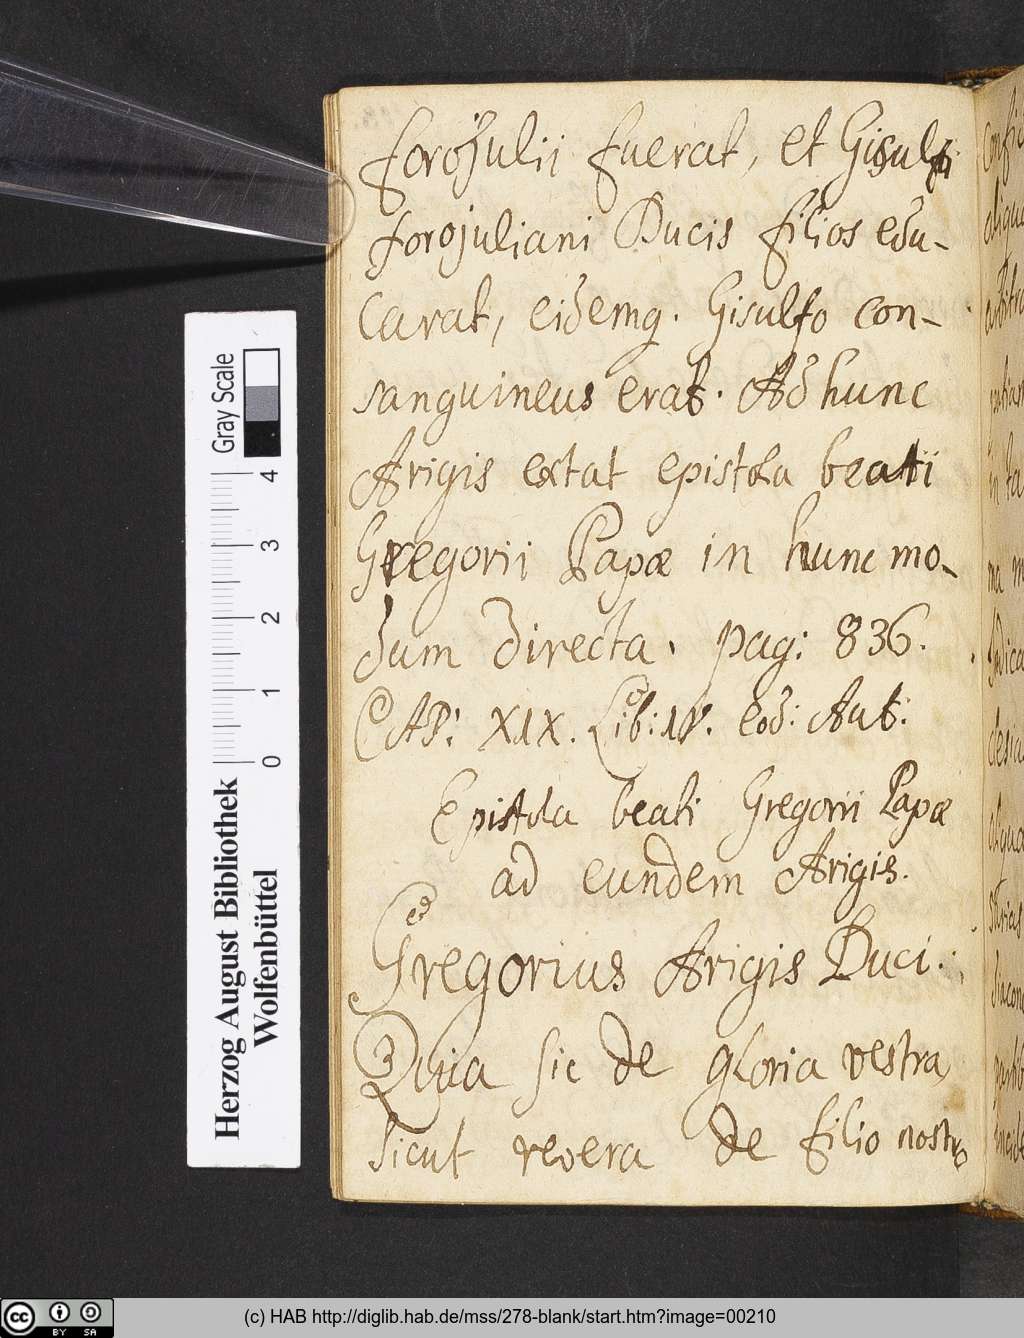 foroJulii fuerat, et Gisulfi
forojuliani Ducis filios edu-
carat, eidemq. Gisulfo con-
sanguineus erat. Ad hunc
Arigis extat epistola beati
Gregorii Papæ in hunc mo-
dum directa. pag: 836.
CAP: XIX. Lib: IV. eod: Aut:
Epistola beati Gregorii Papæ
ad eundem Arigis.
Gregorius Arigis Duci.
Quia sic de gloria vestra,
sicut revera de filio nostro
Gray Scale
4
3
2
1
0
Herzog August Bibliothek
Wolfenbüttel
cc BY SA
(c) HAB http://diglib.hab.de/mss/278-blank/start.htm?image=00210